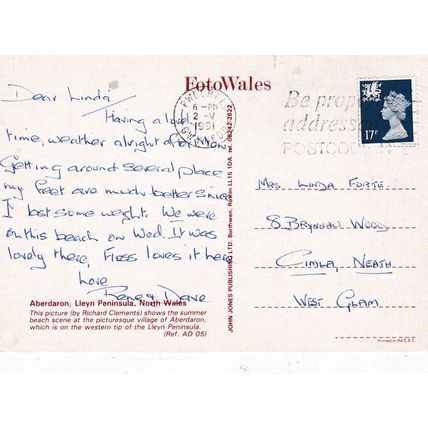 FotoWales
Dear Linda
Having a lovely
time, weather alright after Mon
Getting around several place
my feet are much better since
I lost some weight. We were
on this beach on Wed. It was
lovely there, Floss loves it here
Love
Rene & Dave
Aberdaron, Lleyn Peninsula, North Wales
This picture (by Richard Clements) shows the summer
beach scene at the picturesque village of Aberdaron,
which is on the western tip of the Lleyn Peninsula.
(Ref. AD 05)
JOHN JONES PUBLISHING LTD. Borthwen, Ruthin LL15 1DA. tel: 08242 2622
PWLLHELI
6-PM
2-V
1991
GWYNEDD
Be prop
address
POSTCODE
17P
MRS LINDA FORTE.
8 BRYNNAU WOOD
CIMLA, NEATH
WEST GLAM
Printed in the E.E.C.